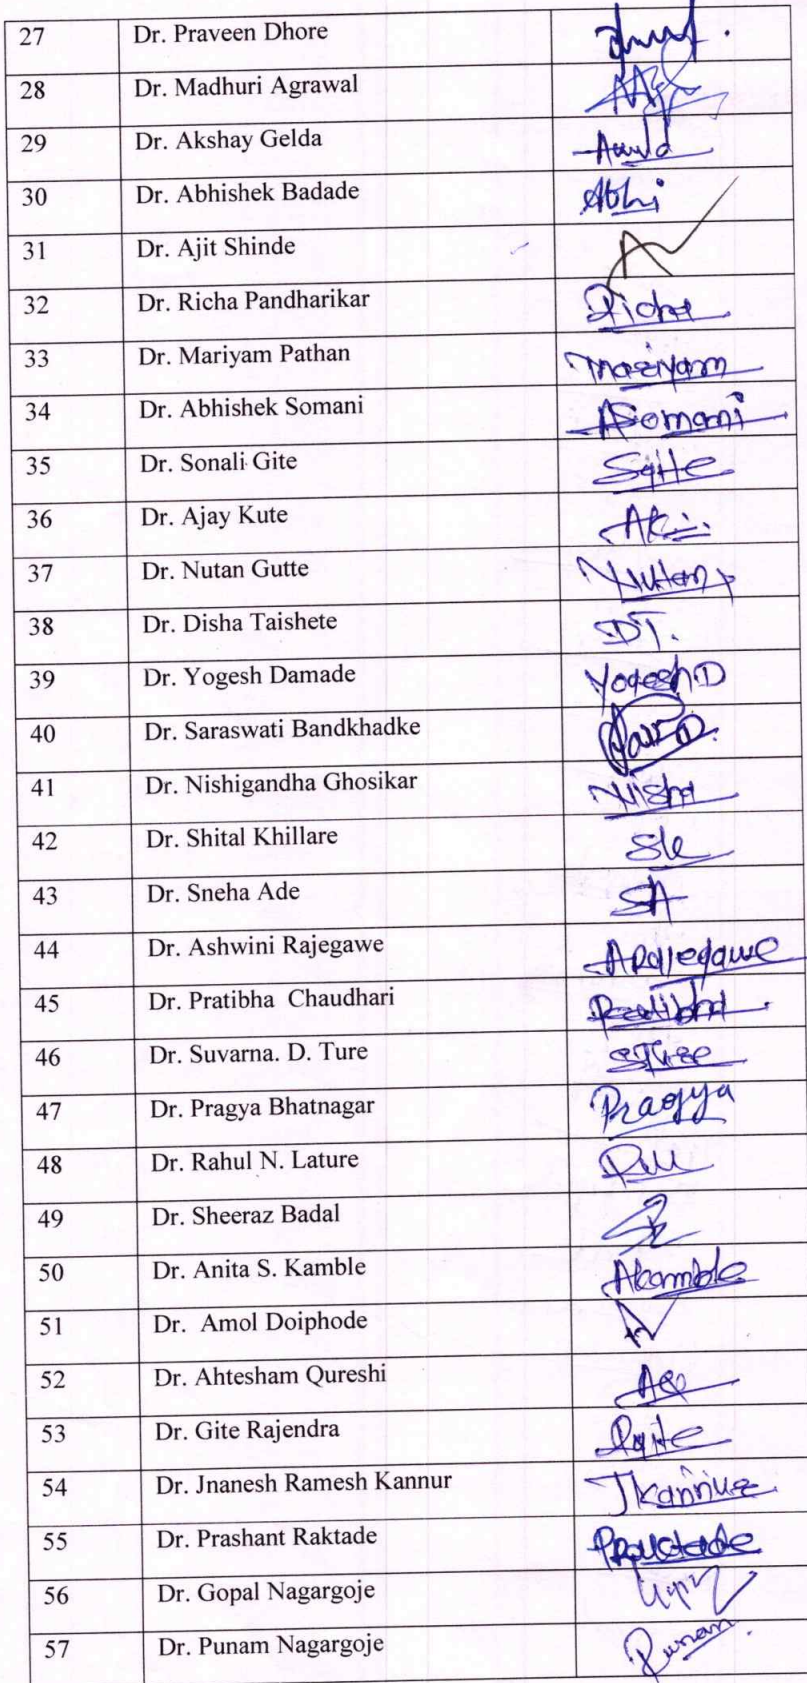 27 Dr. Praveen Dhore
28 Dr. Madhuri Agrawal
29 Dr. Akshay Gelda
30 Dr. Abhishek Badade Abhi
31 Dr. Ajit Shinde
32 Dr. Richa Pandharikar Richa
33 Dr. Mariyam Pathan Mariyam
34 Dr. Abhishek Somani ASomani
35 Dr. Sonali Gite SGite
36 Dr. Ajay Kute
37 Dr. Nutan Gutte Nutan
38 Dr. Disha Taishete DT.
39 Dr. Yogesh Damade Yogesh.D
40 Dr. Saraswati Bandkhadke
41 Dr. Nishigandha Ghosikar Nisha
42 Dr. Shital Khillare
43 Dr. Sneha Ade SA
44 Dr. Ashwini Rajegawe ARajegawe
45 Dr. Pratibha Chaudhari Pratibha
46 Dr. Suvarna. D. Ture STure
47 Dr. Pragya Bhatnagar Pragya
48 Dr. Rahul N. Lature
49 Dr. Sheeraz Badal
50 Dr. Anita S. Kamble AKamble
51 Dr. Amol Doiphode
52 Dr. Ahtesham Qureshi
53 Dr. Gite Rajendra RGite
54 Dr. Jnanesh Ramesh Kannur JKannur
55 Dr. Prashant Raktade PRaktade
56 Dr. Gopal Nagargoje
57 Dr. Punam Nagargoje Punam